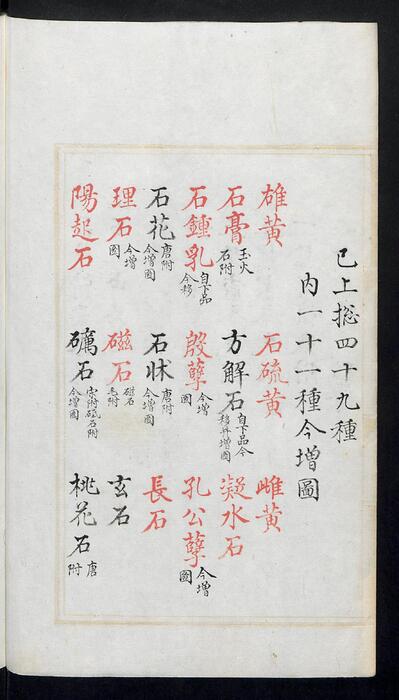 已上揔四十九種
内一十一種今增圖
雄黃 石硫黃 雌黃
石膏玉火石附 方解石自下品今移并增圖 凝水石
石鍾乳自下品今移 殷孽今增圖 孔公孽今增圖
石花唐附今增圖 石牀唐附今增圖 長石
理石今增圖 磁石磁石毛附 玄石
陽起石 礪石宋附砥石附今增圖 桃花石唐附